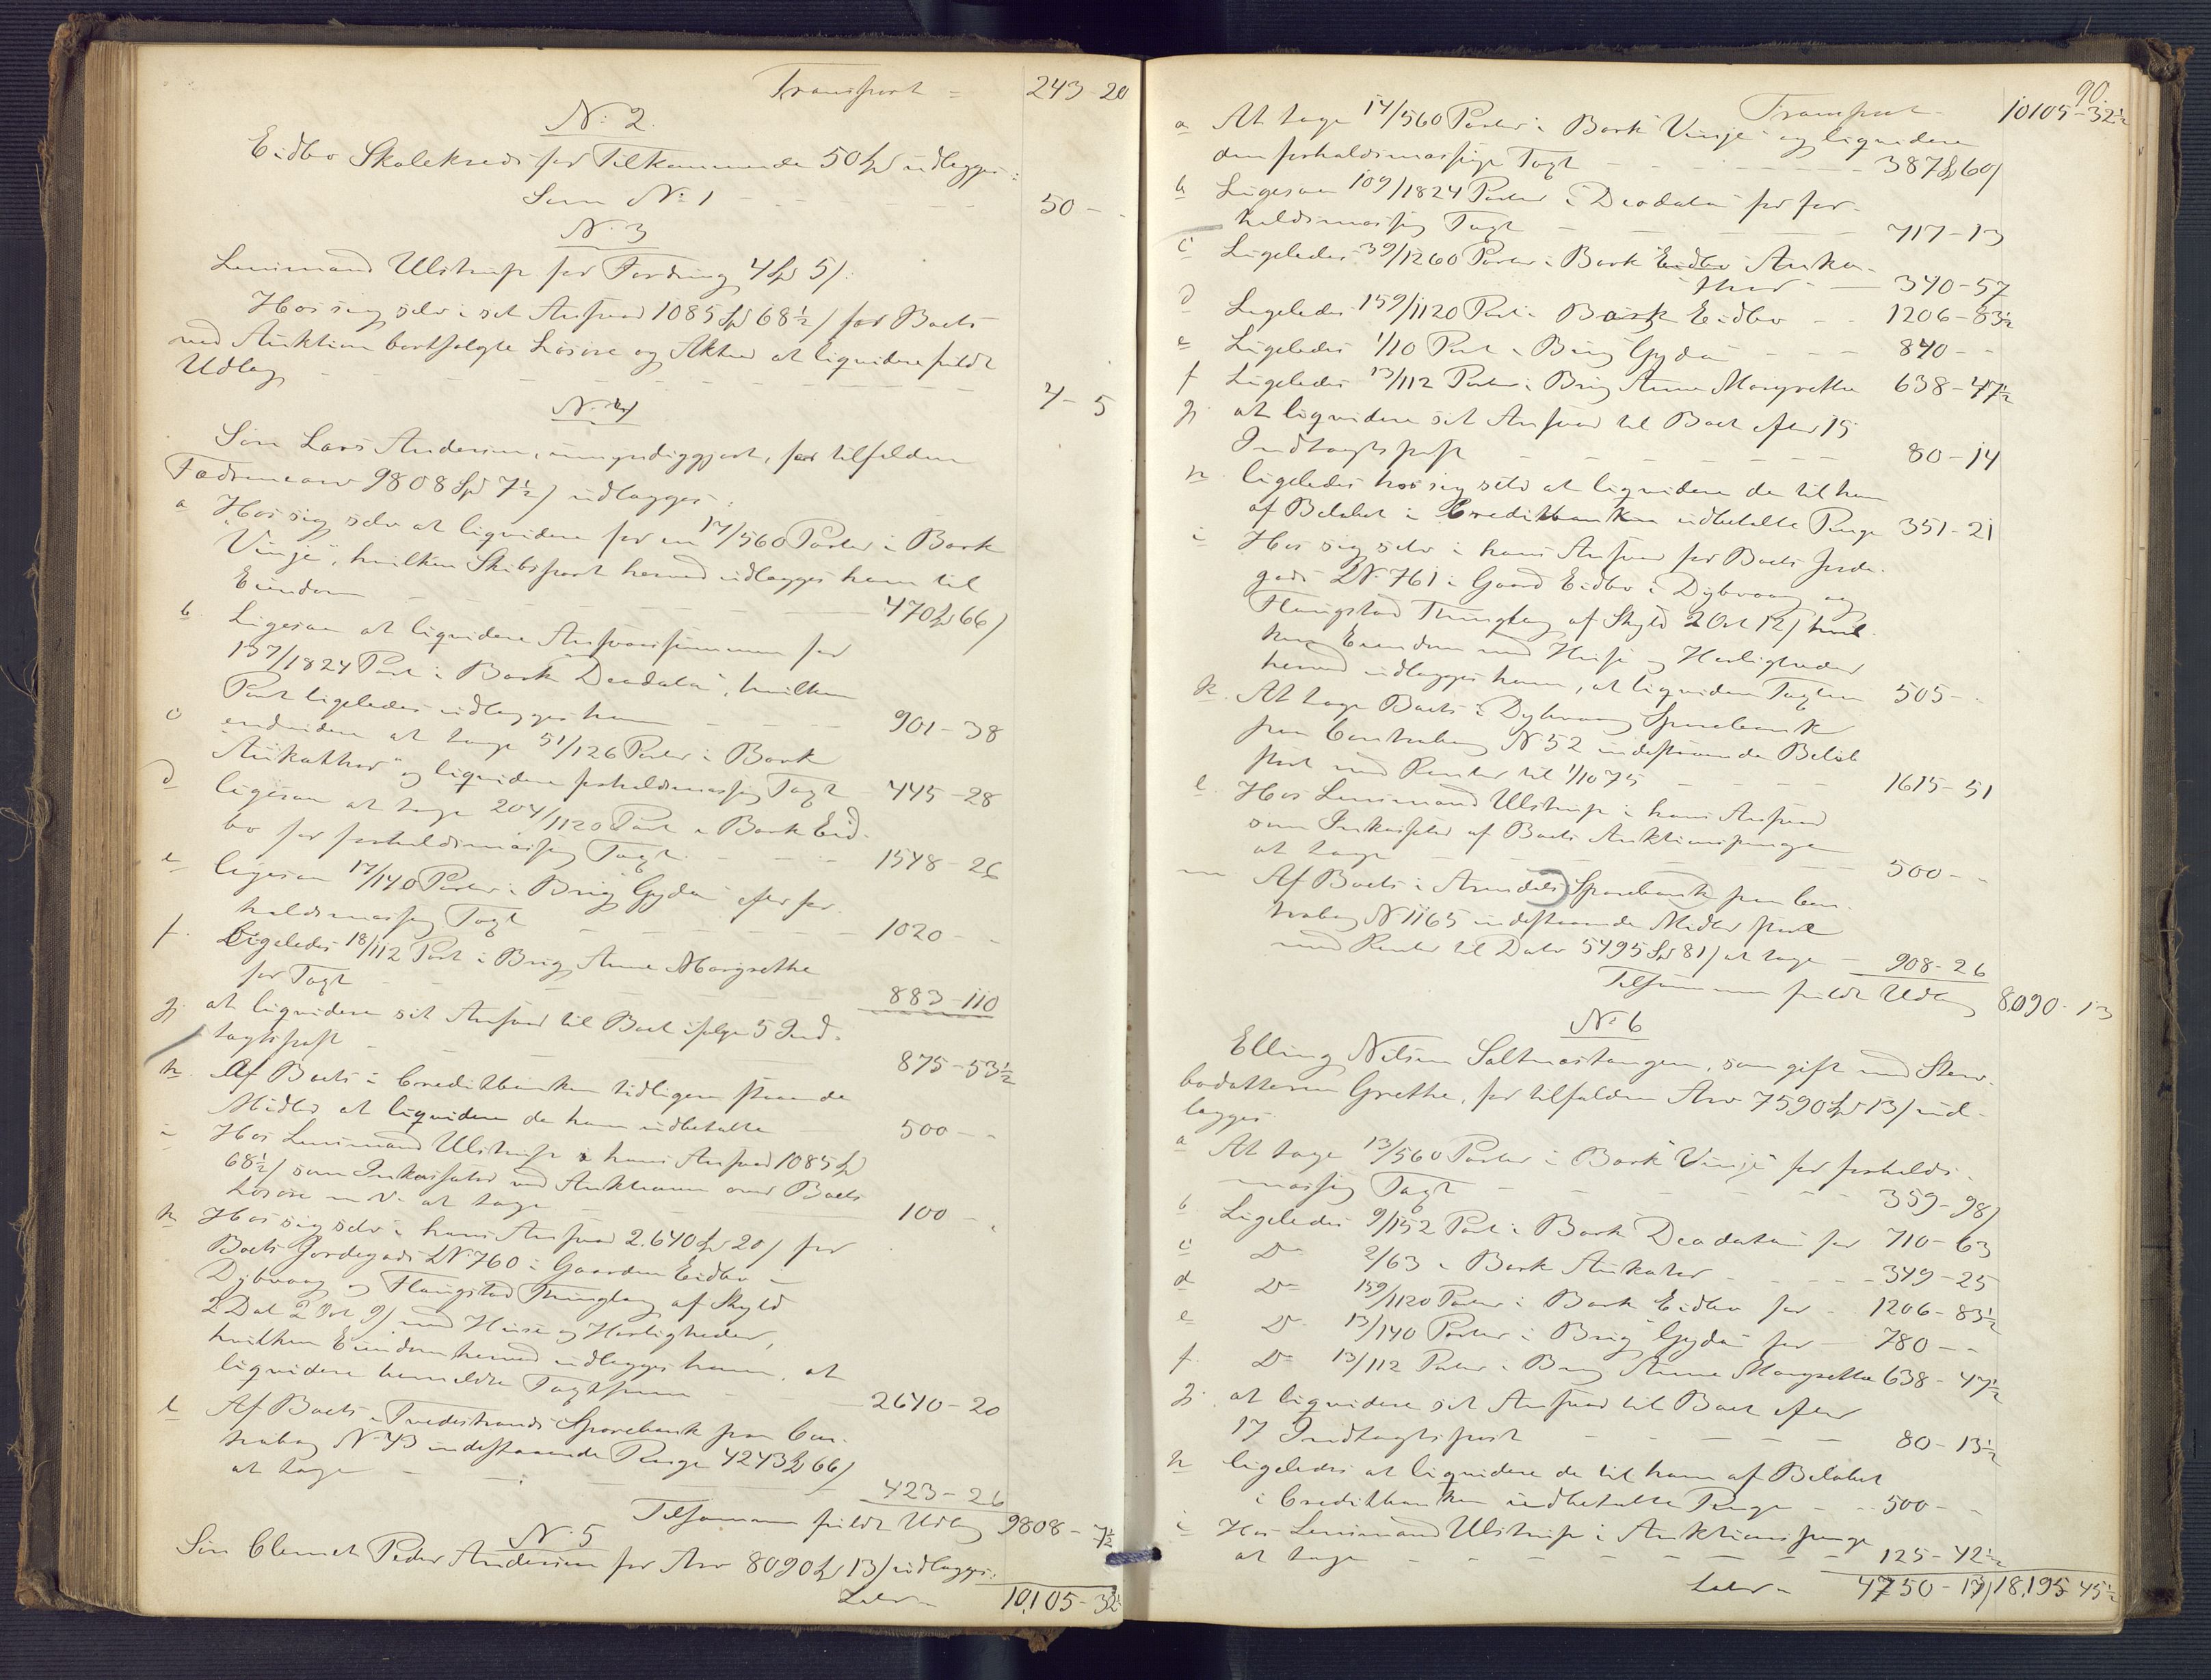 Transport = 243-20
N: 2.
Eidbo Skolekreds for Tilkommende 50 Spd udlægges:
Som N: 1 - - - - - - - 50 - -
N. 3
Lensmand Ulstrup for Fordring 4 Spd 5/:
Hos sig selv i sit Ansvar 1085 Spd 68½/ for Boets
ved Auktion bortsolgte Løsøre og Aktier at liquidere fuldt
Udlæg - - - - - - - 4-5
N. 4
Søn Lars Andersen, umyndiggjort, for tilfalden
Fædrenearv 9808 Spd 7½/ udlægges:
a Hos sig selv at liquidere for en 17/560 Parter i Bark
"Vinje", hvilken Skibspart herved udlægges ham til
Eiendom - - - - 470 Spd 66/
b. Ligesaa at liquidere Ansvarssummen for
137/1824 Part i Bark "Deodata", hvilken
Part ligeledes udlægges ham - - - 901-38
c endvidere at tage 51/126 Parter i Bark
"Aukathor" og liquidere forholdsmæssig Taxt - 445-28
d ligesaa at tage 204/1120 Part i Bark Eid-
bo for forholdsmæssig Taxt. - - - 1548-26
e ligesaa 17/140 Parter i Brig "Gyda" efter for-
holdsmæssig Taxt - - - - 1020 - -
f. Ligeledes 18/112 Part i Brig Anne Margrethe
for Taxt - - - - - 883-110
g. at liquidere sit Ansvar til Boet ifølge 5 Ind-
tægtspost - - - - - 875-53½
h. Af Boets i Creditbanken tidligere staaende
Midler at liquidere de ham udbetalte 500 - -
i Hos Lensmand Ulstrup i hans Ansvar 1085 Spd
68½/ som Inkassator ved Auktionen over Boets
Løsøre m. v. at tage - - - 100 - -
k Hos sig selv i hans Ansvar 2.640 Spd 20/ for
Boets Jordegods LN: 760 i Gaarden Eidbo i
Dybvaag og Flangstad Thinglag af Skyld
2 Dal 2 Ort 9/ med Huse og Herligheder,
hvilken Eiendom herved udlægges ham, at
liquidere bemeldte Taxtsum - - 2640-20
l Af Boets i Tvedestrands Sparebank paa Con-
trabog N: 43 indestaaende Penge 4243 Spd 66/
at tage - - - - - 423-26
Tilsammen fuldt Udlæg 9808-7½
N. 5
Søn Clemet Peder Andersen for Arv 8090 Spd 13/ udlægges:
Latr - 10,105-32½
90.
Transport 10105-32½
a At tage 14/560 Parter i Bark "Vinje" og liquidere
den forholdsmæssige Taxt - - - - 387 Spd 60/
b Ligesaa 109/1824 Parter i "Deodata" for for-
holdsmæssig Taxt - - - - 717-13
c Ligeledes 39/1260 Parter i Bark Eidbo Auka-
thor - - 340-57
d Ligeledes 159/1120 Part i Bark Eidbo - - 1206-83½
e Ligeledes 1/10 Part i Brig "Gyda" - - - 840 - -
f Ligeledes 13/112 Parter i Brig Anne Margrethe 638-47½
g. at liquidere sit Ansvar til Boet efter 15
Indtægtspost - - - - - 80-14
h ligeledes hos sig selv at liquidere de til ham
af Beløbet i Creditbanken udbetalte Penge 351-21
i Hos sig selv i hans Ansvar for Boets Jorde-
gods LN: 761 i Gaard Eidbo i Dybvaag og
Flangstad Thinglag af Skyld 2 Ort 12/ hvil-
ken Eiendom med Huse og Herligheder
herved udlægges ham, at liquidere Taxten 505 - -
k. At tage Boets i Dybvaag Sparebank
paa Contrabog N: 52 indestaaende Beløb
stort med Renter til 1/10 75 - - - - 1615-51
l Hos Lensmand Ulstrup i hans Ansvar
som Inkassator af Boets Auktionspenge
at tage - - - - - - 500 - -
m Af Boets i Arendals Sparebank paa Con-
trabog N: 1165 indestaaende Midler stort
med Renter til Dato 5495 Spd 81/ at tage - 908-26
Tilsammen fuldt Udlæg 8090-13
N: 6
Elling Nilsen Saltnæstangen, som gift med Sterv-
bodatteren Grethe, for tilfalden Arv 7590 Spd 13/ ud-
lægges
a At tage 13/560 Parter i Bark "Vinje" for forholds-
mæssig Taxt - - - - - - 359-98/
b. Ligeledes 9/152 Part i Bark Deodata for 710-63
c Do 2/63 i Bark Aukator - - - - 349-25
d Do 159/1120 Parter i Bark Eidbo for - 1206-83½
e Do 13/140 Parter i Brig "Gyda" for - 780 - -
f. Do 13/112 Parter i Brig Anne Margrethe 638-47½
g. at liquidere sit Ansvar til Boet efter
17 Indtægtspost - - - - - 80-13½
h ligeledes at liquidere de til ham af Beløbet
i Creditbanken udbetalte Penge - - 500 - -
i Hos Lensmand Ulstrup i Auktionspenge
at tage - - - - - - - 125-42½
Latr - 4750-13/ 18,195-45½